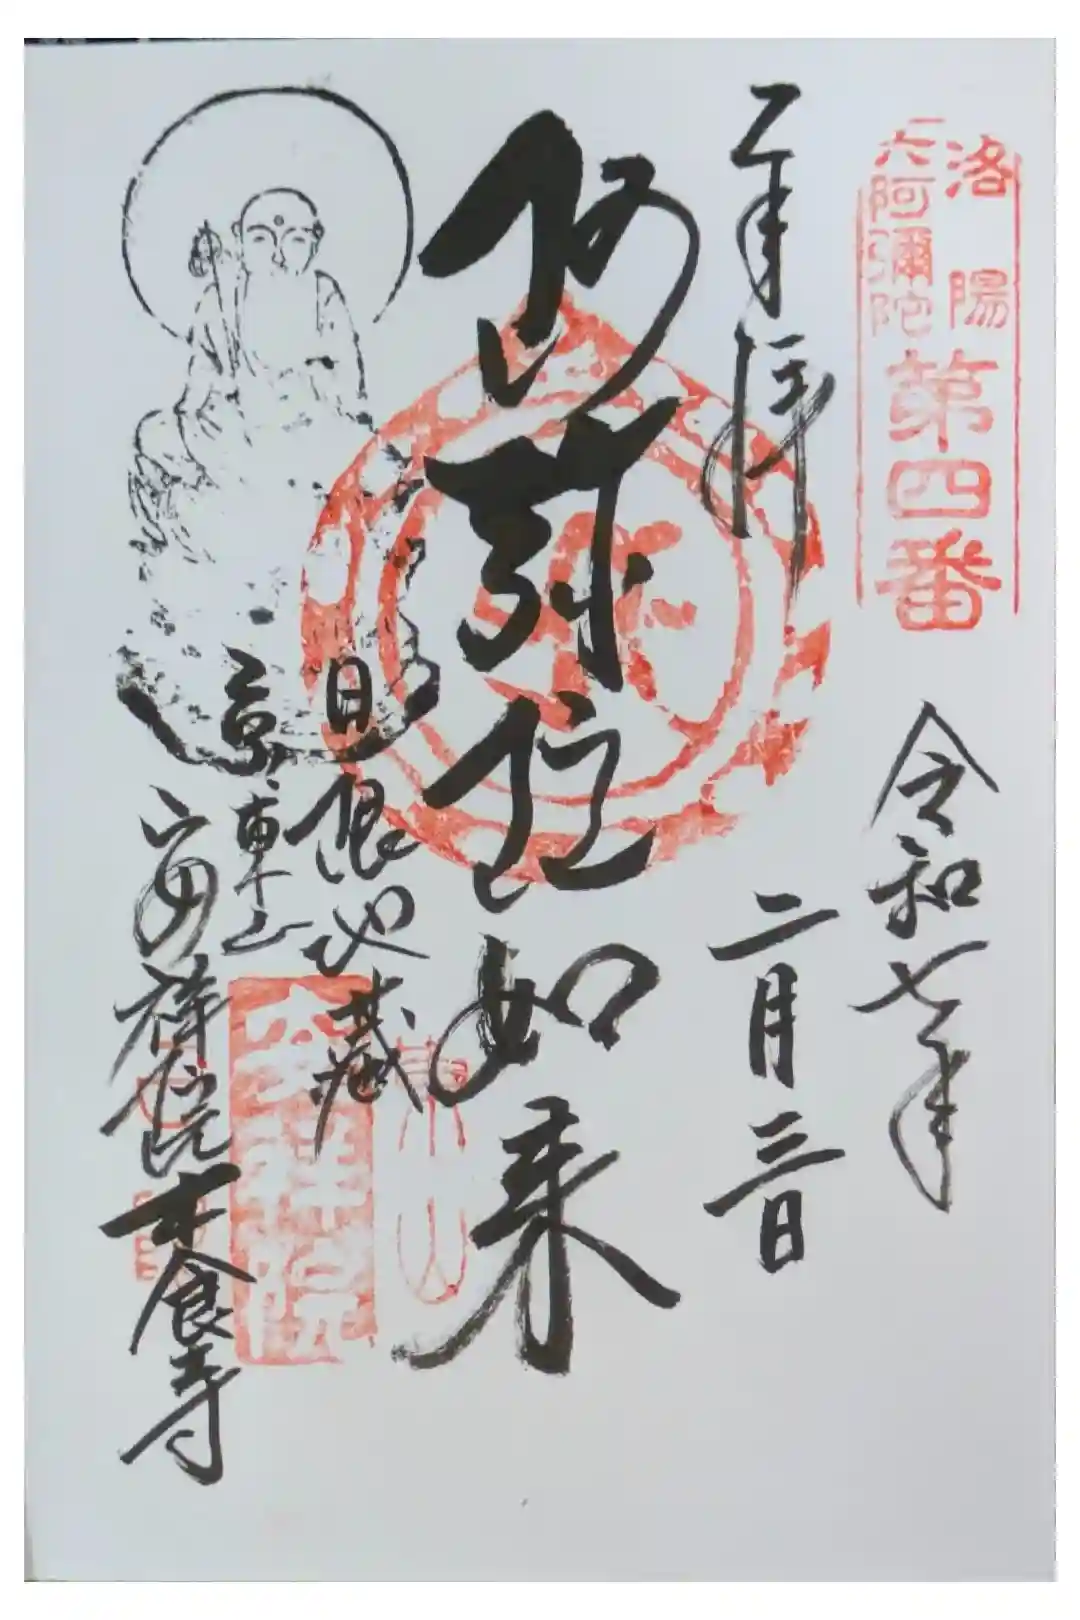 洛陽
六阿彌陀
第四番
奉拝
令和七年
二月三日
阿弥陀如来
日限地蔵
京東山
安祥院木食寺
安祥院